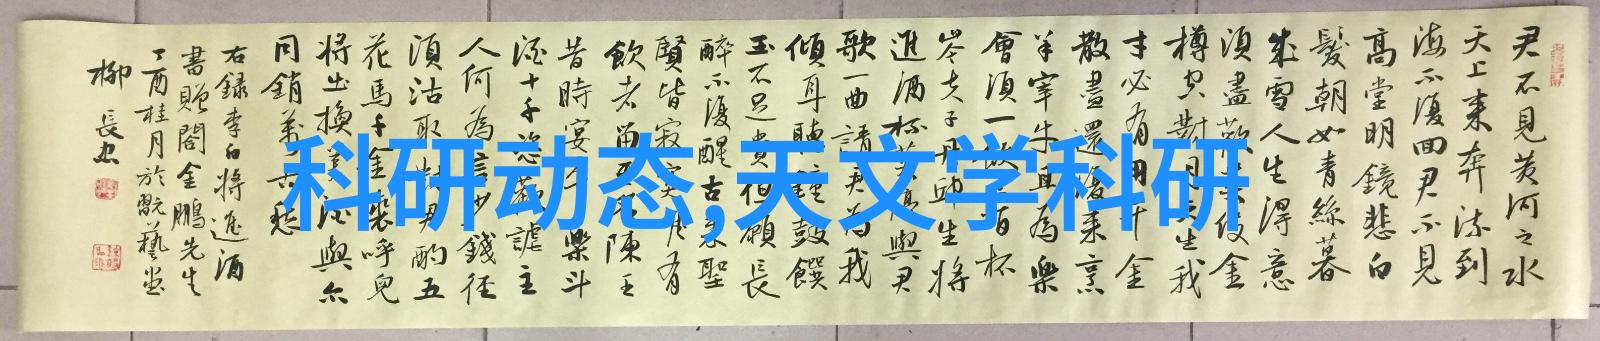 君不見黄河之水
天上来奔流到
海不復回君不見
高堂明鏡悲白
髮朝如青絲暮
成雪人生得意
須盡歡莫使金
樽空對月天生我
才必有用千金
散盡還復来烹
羊宰牛且為樂
會須一飲三百杯
岑夫子丹邱生將
進酒杯莫停與君
歌一曲請君為我
傾耳聽鐘鼓饌
玉不足貴但願長
醉不復醒古来聖
賢皆寂寞惟有
飲者留其名陳王
昔時宴平樂斗
酒十千恣歡謔主
人何為言少錢径
須沽取對君酌五
花馬千金裘呼兒
將出換美酒與尔
同銷萬古愁
右録李白將進酒
書贈閤金鵬先生
丁酉桂月於翫藝堂
柳長忠
科研动态,天文学科研